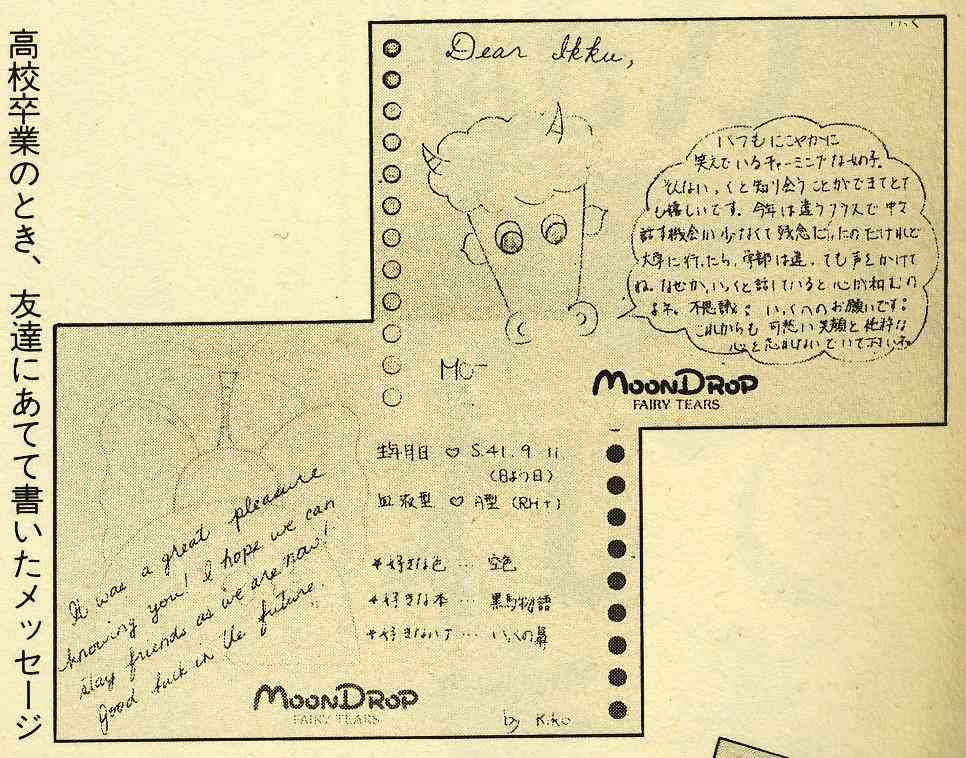 高校卒業のとき、友達にあてて書いたメッセージ
Dear Ikku,
いつもにこやかに
笑えているチャーミングな女の子。
そんないっくと知り合うことができてとて
も嬉しいです。今年は違うクラスで中々
話す機会が少なくて残念だったのだけれど
大学に行ったら、学部は違っても声をかけて
ね。なぜか、いっくと話していると心が和むの
よネ。不思議。いっくへのお願いです:
これからも可愛い笑顔と純粋な
心を忘れないでいて下さいネ
MO-
MOONDROP
FAIRY TEARS
生年月日 ♡ S.41. 9. 11
(日よう日)
血液型 ♡ A型 (RH+)
*好きな色 … 空色
*好きな本 … 黒馬物語
*好きな … いっくの鼻
It was a great pleasure
knowing you! I hope we can
stay friends as we are now!
Good luck in the future.
MOONDROP
FAIRY TEARS
by Kiko